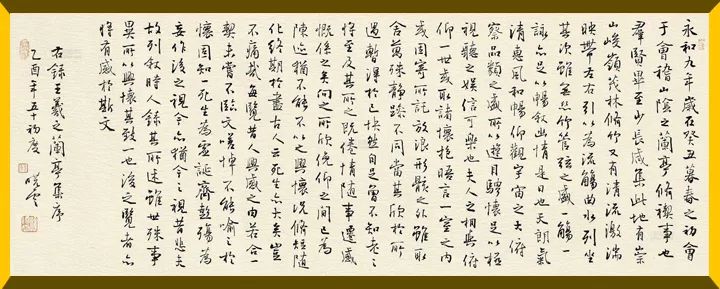 永和九年歲在癸丑暮春之初會
于會稽山陰之蘭亭脩禊事也
群賢畢至少長咸集此地有崇
山峻嶺茂林脩竹又有清流激湍
映帶左右引以為流觴曲水列坐
其次雖無絲竹管弦之盛一觴一
詠亦足以暢敘幽情是日也天朗氣
清惠風和暢仰觀宇宙之大俯
察品類之盛所以遊目騁懷足以極
視聽之娛信可樂也夫人之相與俯
仰一世或取諸懷抱晤言一室之內
或因寄所託放浪形骸之外雖取
舍萬殊靜躁不同當其欣於所
遇暫得於己快然自足曾不知老之
將至及其所之既倦情隨事遷感
慨係之矣向之所欣俛仰之間已為
陳迹猶不能不以之興懷況脩短隨
化終期於盡古人云死生亦大矣豈
不痛哉每覽昔人興感之由若合一
契未嘗不臨文嗟悼不能喻之於
懷固知一死生為虛誕齊彭殤為
妄作後之視今亦猶今之視昔悲夫
故列敘時人錄其所述雖世殊事
異所以興懷其致一也後之覽者亦
將有感於斯文
右錄王羲之蘭亭集序
乙酉年五十初度